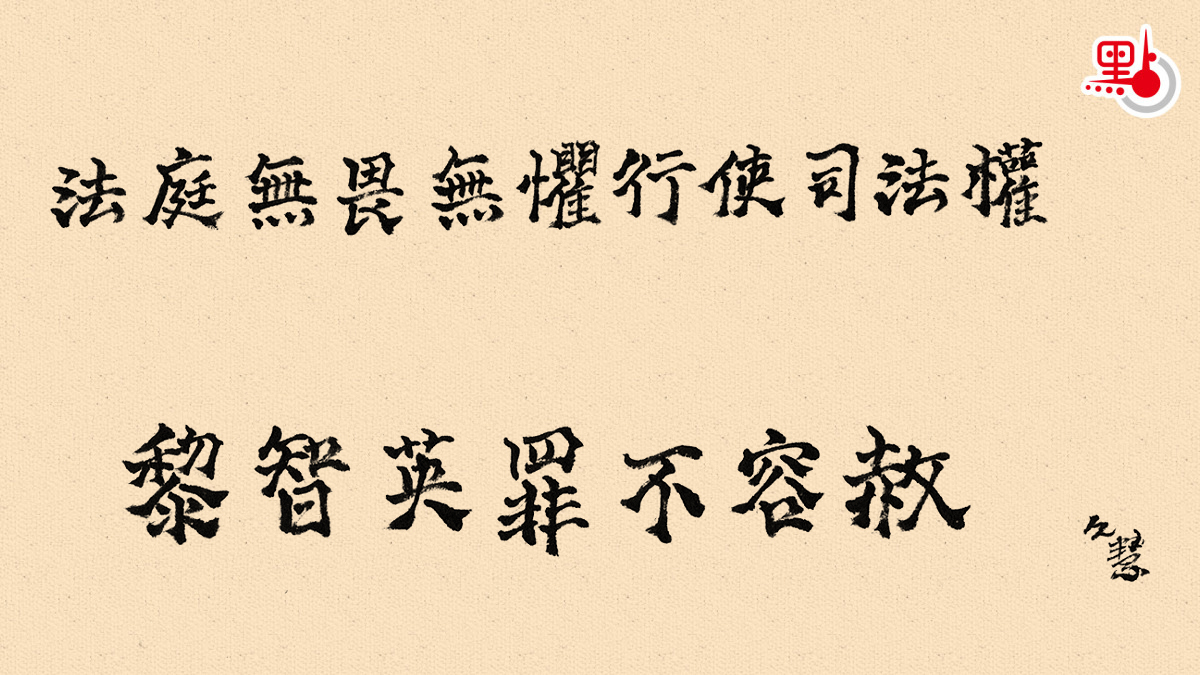 點
法庭無畏無懼行使司法權
黎智英罪不容赦
久慧